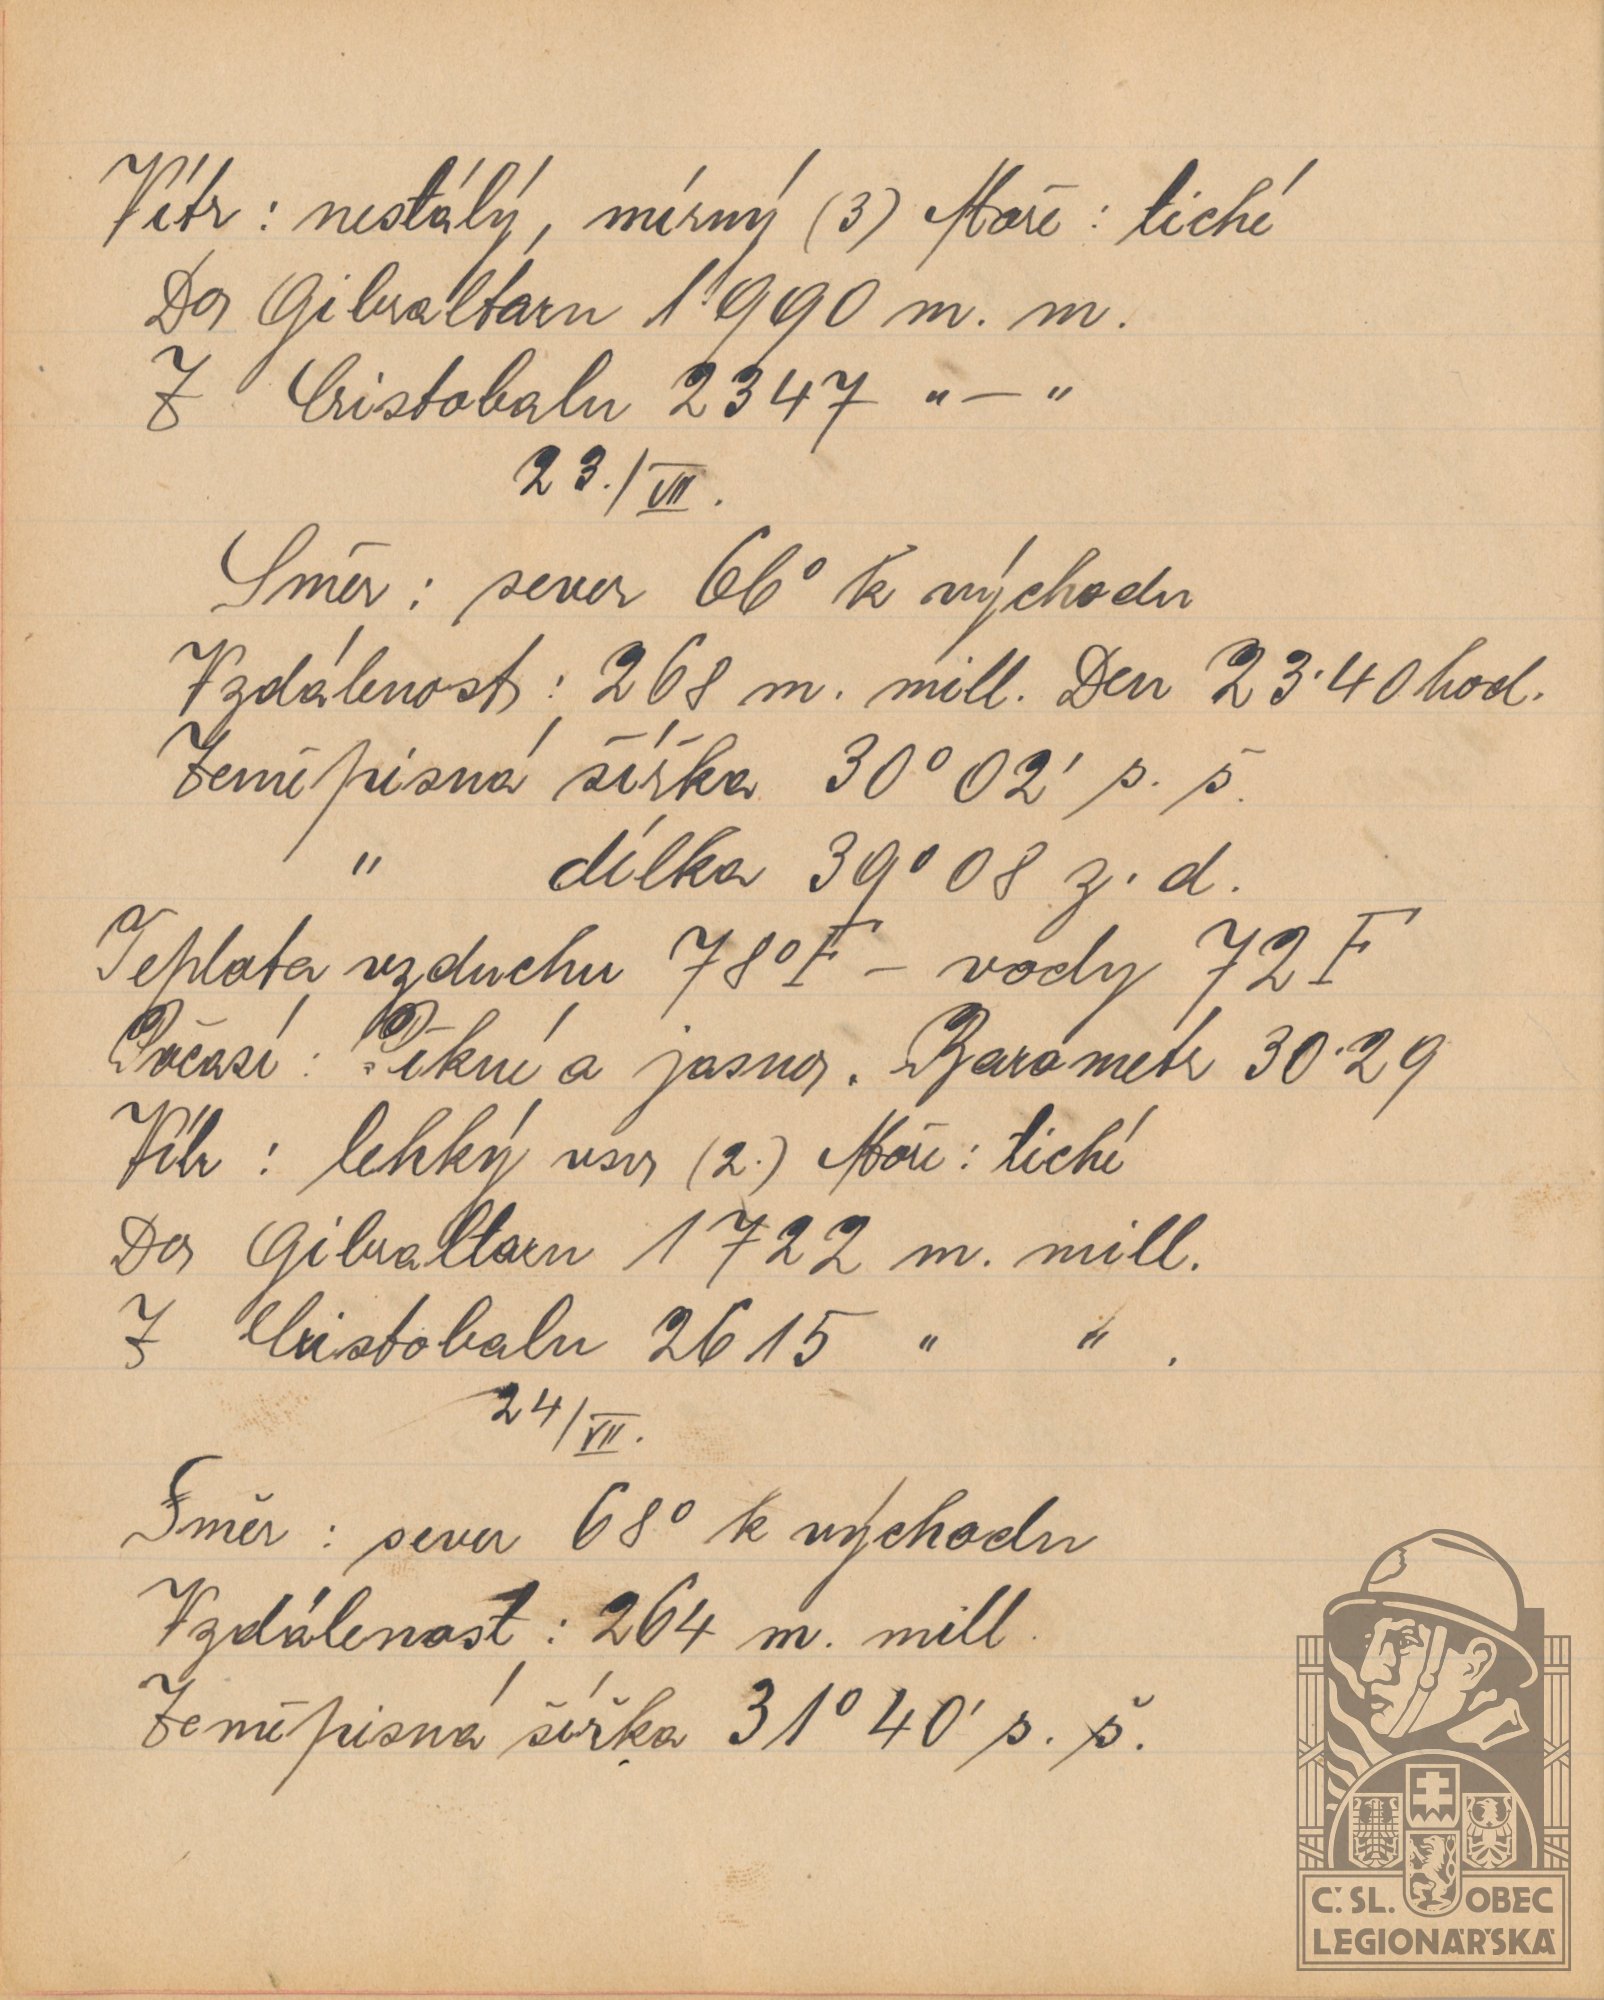 Vítr : nestálý, mírný (3) Moře : tiché
Do Gibraltaru 1'990 m. m.
Z Cristobalu 2347 " — "
23./VII.
Směr : sever 66° k východu
Vzdálenost : 268 m. mill. Den 23·40 hod.
Zeměpisná šířka 30° 02' s. š.
" délka 39° 08 z. d.
Teplota vzduchu 78° F – vody 72 F
Počasí : Pěkné a jasno. Barometr 30·29
Vítr : lehký vsv (2.) Moře : tiché
Do Gibraltaru 1722 m. mill.
Z Cristobalu 2615 " " .
24/VII.
Směr : sever 68° k východu
Vzdálenost : 264 m. mill.
Zeměpisná šířka 31° 40' s. š.
Č. SL. OBEC
LEGIONÁŘSKÁ